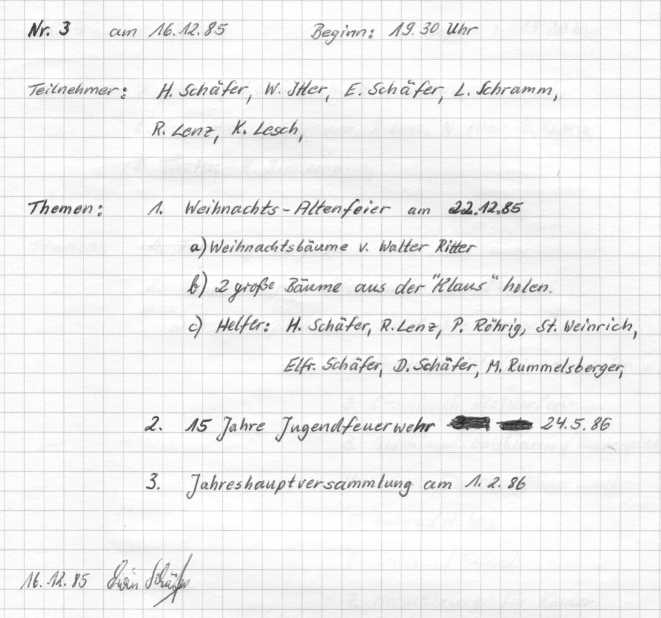 Nr. 3 am 16.12.85 Beginn: 19.30 Uhr
Teilnehmer: H. Schäfer, W. Itter, E. Schäfer, L. Schramm,
R. Lenz, K. Lesch,
Themen: 1. Weihnachts-Altenfeier am 22.12.85
a) Weihnachtsbäume v. Walter Ritter
b) 2 große Bäume aus der "Klaus" holen.
c) Helfer: H. Schäfer, R. Lenz, P. Röhrig, St. Weinrich,
Elfr. Schäfer, D. Schäfer, M. Rummelsberger,
2. 15 Jahre Jugendfeuerwehr 24.5.86
3. Jahreshauptversammlung am 1.2.86
16.12.85 Schäfer